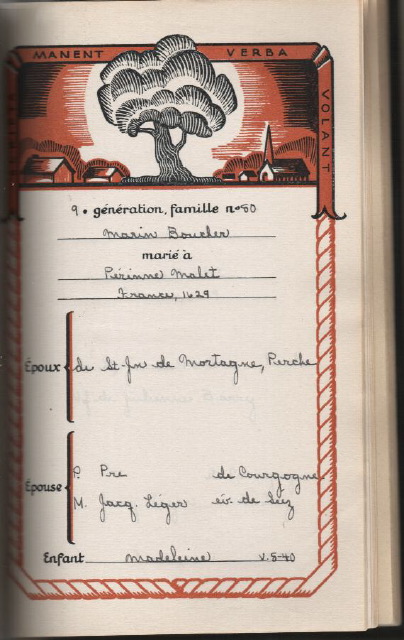 MANENT VERBA
VOLANT
9e génération, famille no 80
Marin Boucher
marié à
Périnne Malet
France, 1629
Époux de St-Jn de Mortagne, Perche
P. Pre de Courgogne
Épouse
M. Jacq. Léger év. de Séez
Enfant Madeleine V. 8-40